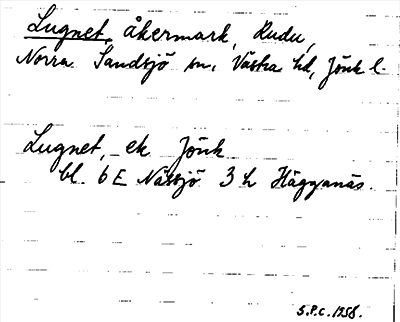 Lugnet, åkermark, Rudu,
Norra Sandsjö sn, Västra hd, Jönk l.
Lugnet, ek Jönk
bl. 6E Nässjö 3 h Hägganäs.
S.P.C. 1958.